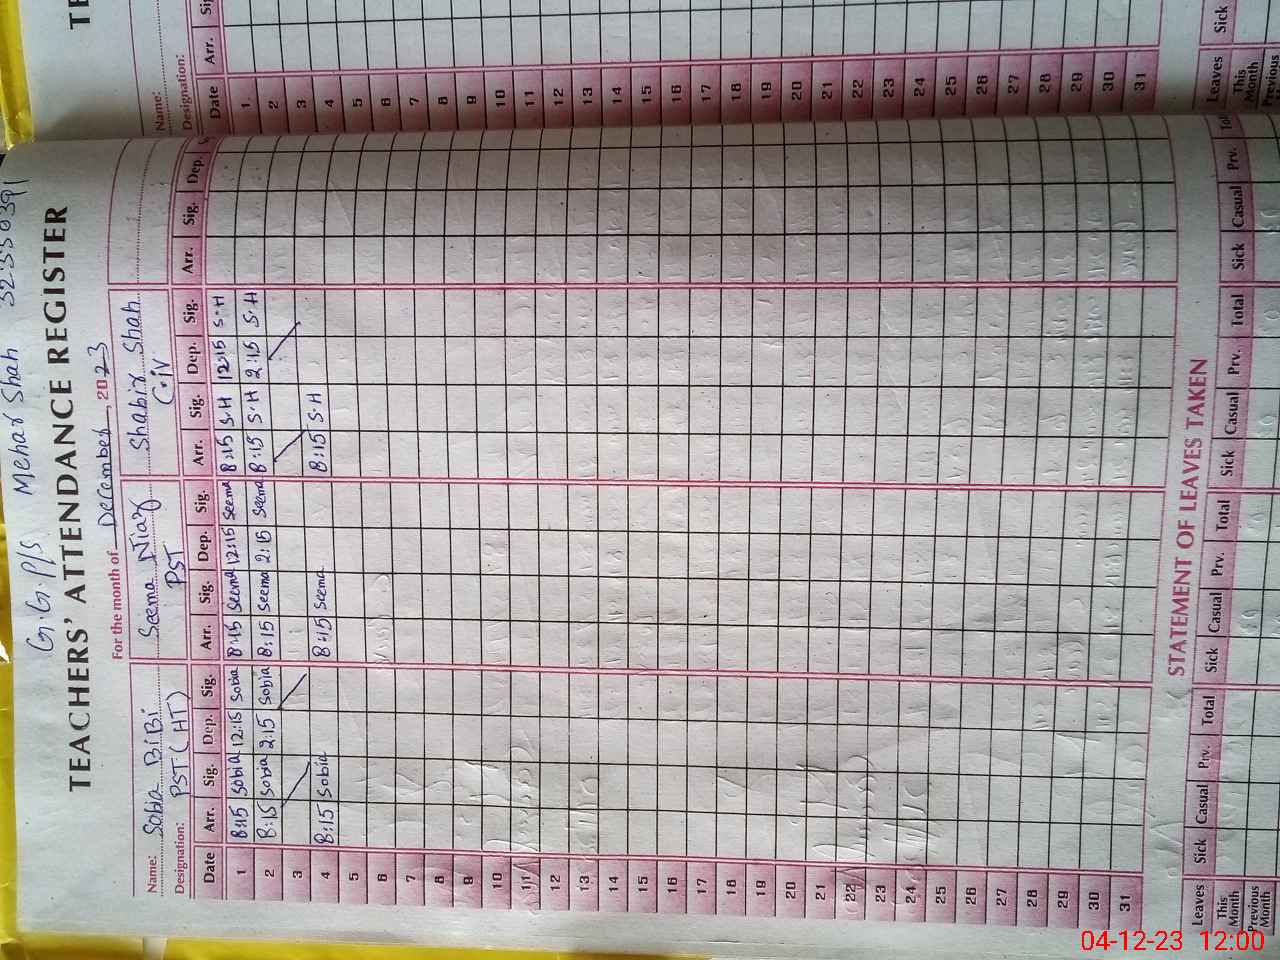 G.G.P/S Mehar Shah 32330391
TEACHERS' ATTENDANCE REGISTER
For the month of December, 2023
Name: Sobia BiBi Seema Niaz Shabir Shah
Designation: PST (HT) PST C.iv
Date Arr. Sig. Dep. Sig. Arr. Sig. Dep. Sig. Arr. Sig. Dep. Sig. Arr. Sig. Dep.
1 8:15 Sobia 12:15 Sobia 8:15 Seema 12:15 Seema 8:15 S.H 12:15 S.H
2 8:15 Sobia 2:15 Sobia 8:15 Seema 2:15 Seema 8:15 S.H 2:15 S.H
3
4 8:15 Sobia 8:15 Seema 8:15 S.H
5
6
7
8
9
10
11
12
13
14
15
16
17
18
19
20
21
22
23
24
25
26
27
28
29
30
31
STATEMENT OF LEAVES TAKEN
Leaves Sick Casual Prv. Total Sick Casual Prv. Total Sick Casual Prv. Total Sick Casual Prv.
This Month
Previous
Name:
Designation:
Date Arr.
1
2
3
4
5
6
7
8
9
10
11
12
13
14
15
16
17
18
19
20
21
22
23
24
25
26
27
28
29
30
31
Leaves Sick
This Month
Previous
04-12-23 12:00